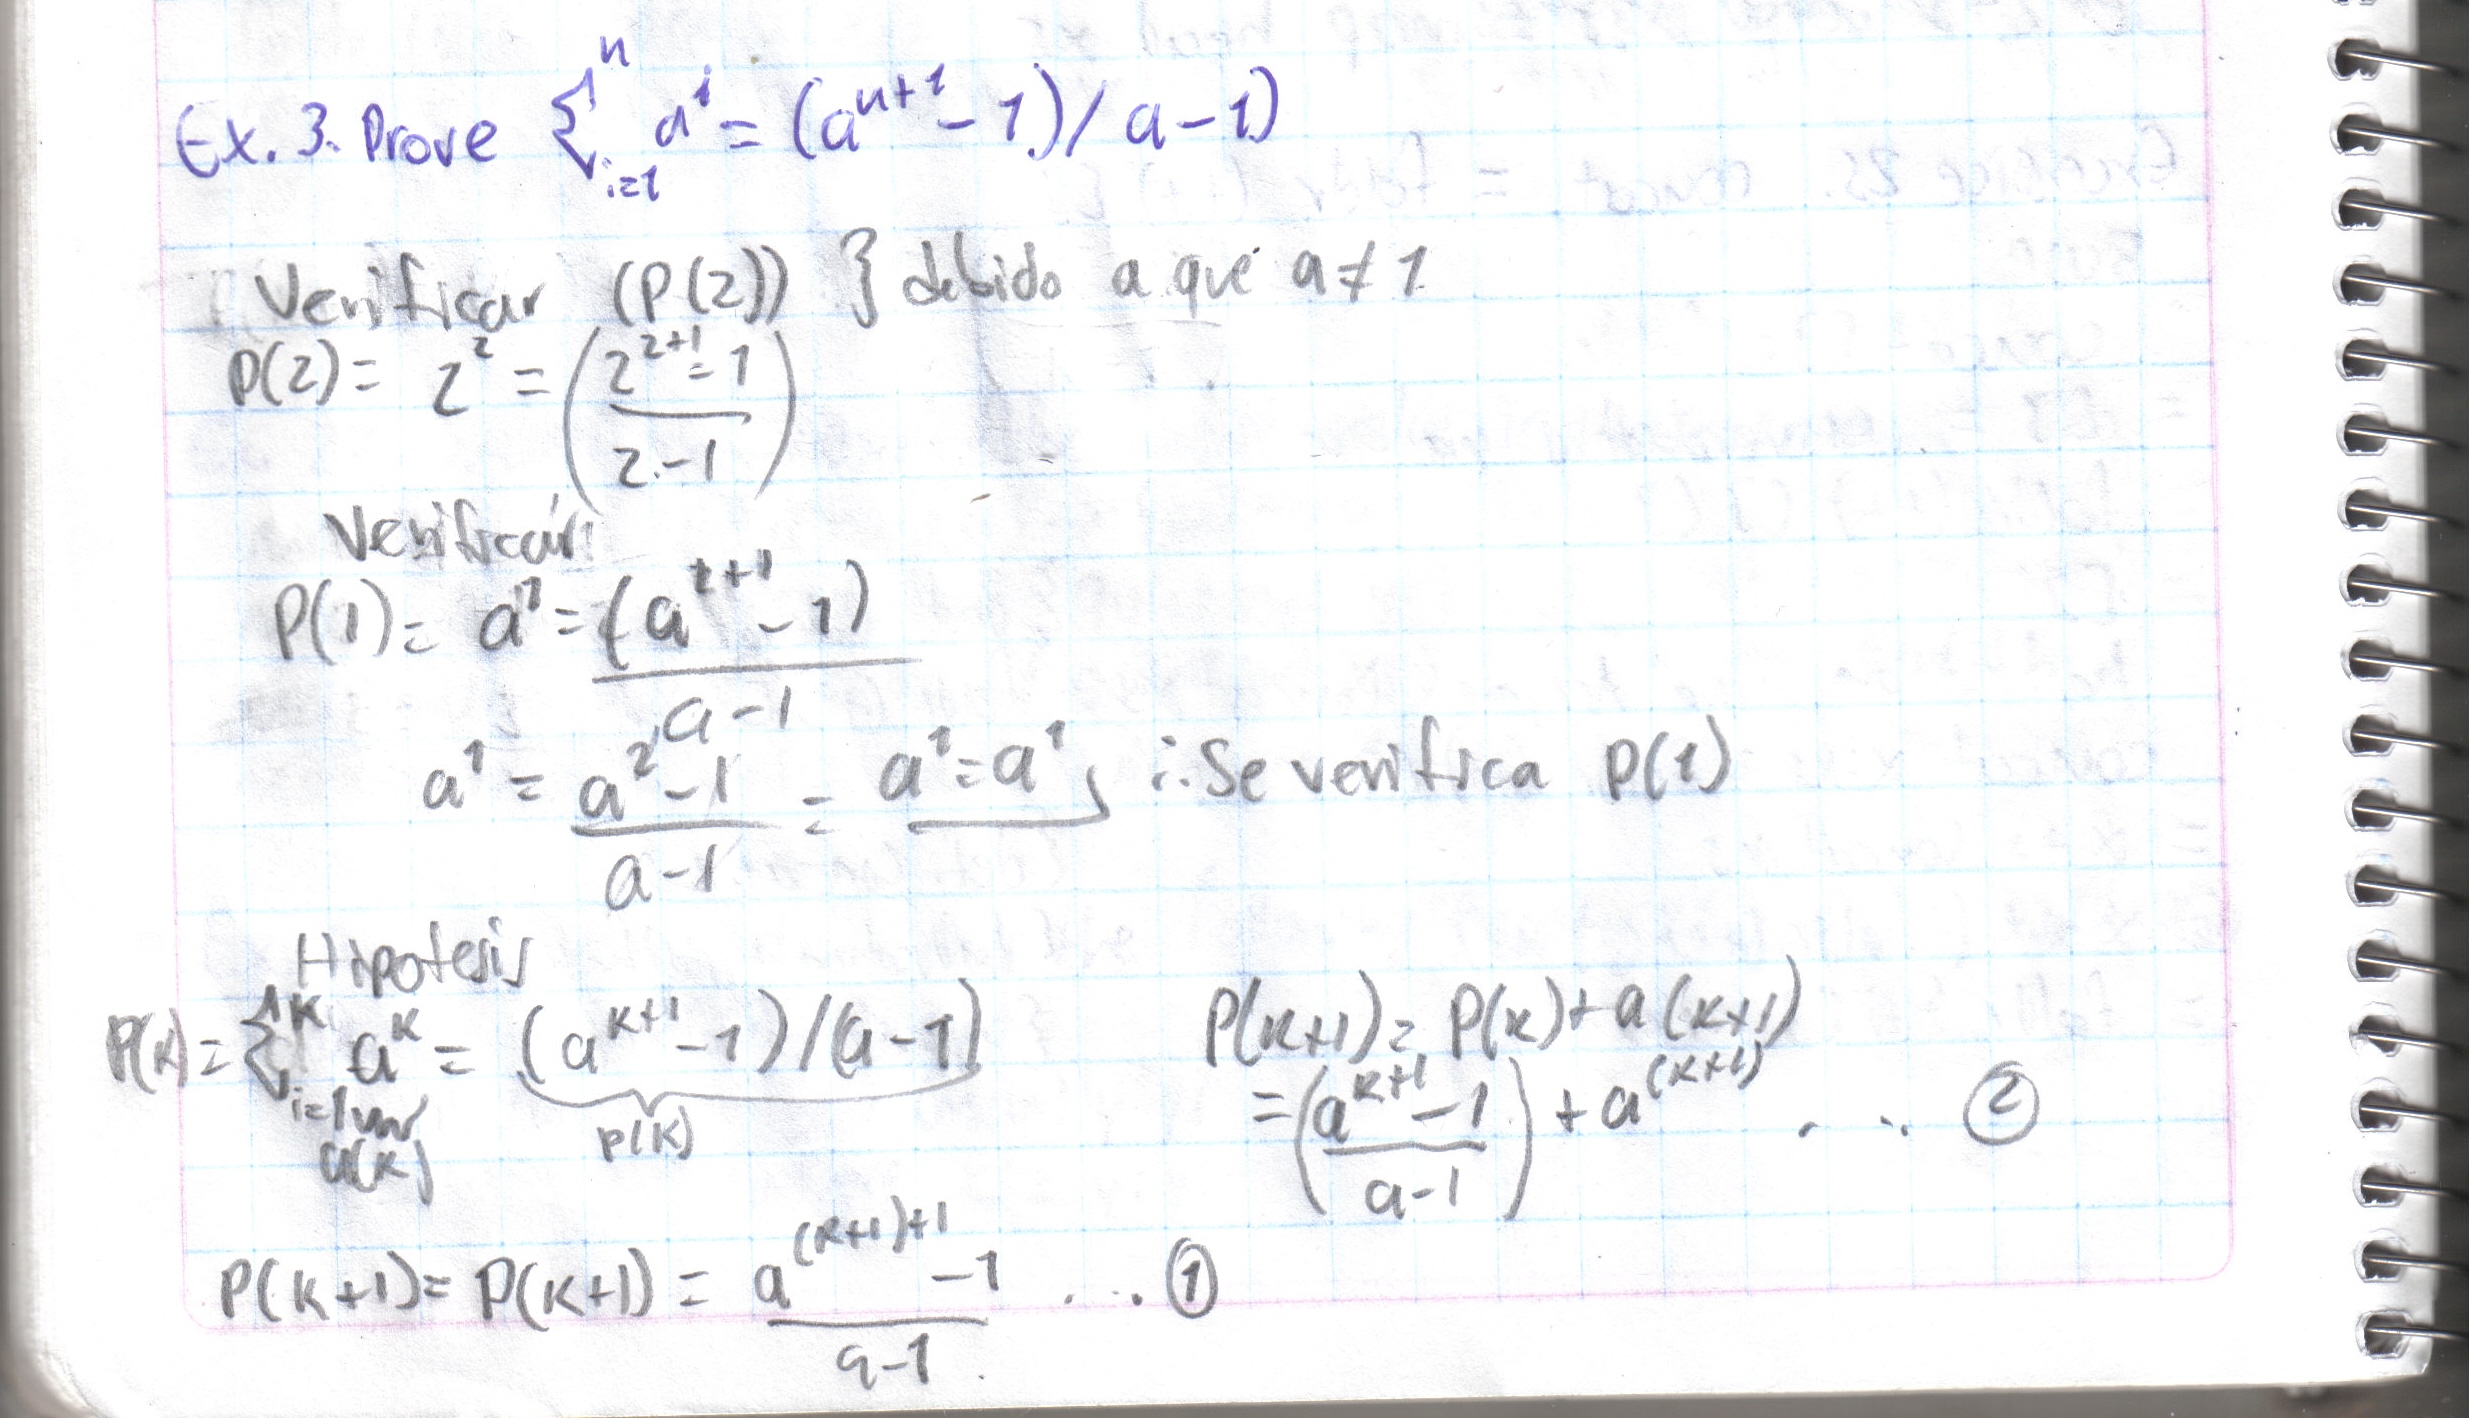 Ex. 3. Prove ∑_{i=1}^{n} a^i = (a^{n+1} - 1)/ a-1)
Verificar (P(2)) } debido a que a ≠ 1
P(2) = 2^2 = ( (2^{2+1} - 1) / (2-1) )
Verificar
P(1) = a^1 = (a^{1+1} - 1) / (a-1)
a^1 = (a^2 - 1) / (a-1) = a^1 = a^1, ∴ Se verifica P(1)
Hipotesis
P(k) = ∑_{i=1}^{k} a^k = (a^{k+1} - 1)/(a-1)
a(k)
P(k)
P(k+1) = P(k+1) = (a^{(k+1)+1} - 1) / (a-1) ... ①
P(k+1) = P(k) + a(k+1)
= ( (a^{k+1} - 1) / (a-1) ) + a^{(k+1)} ... ②